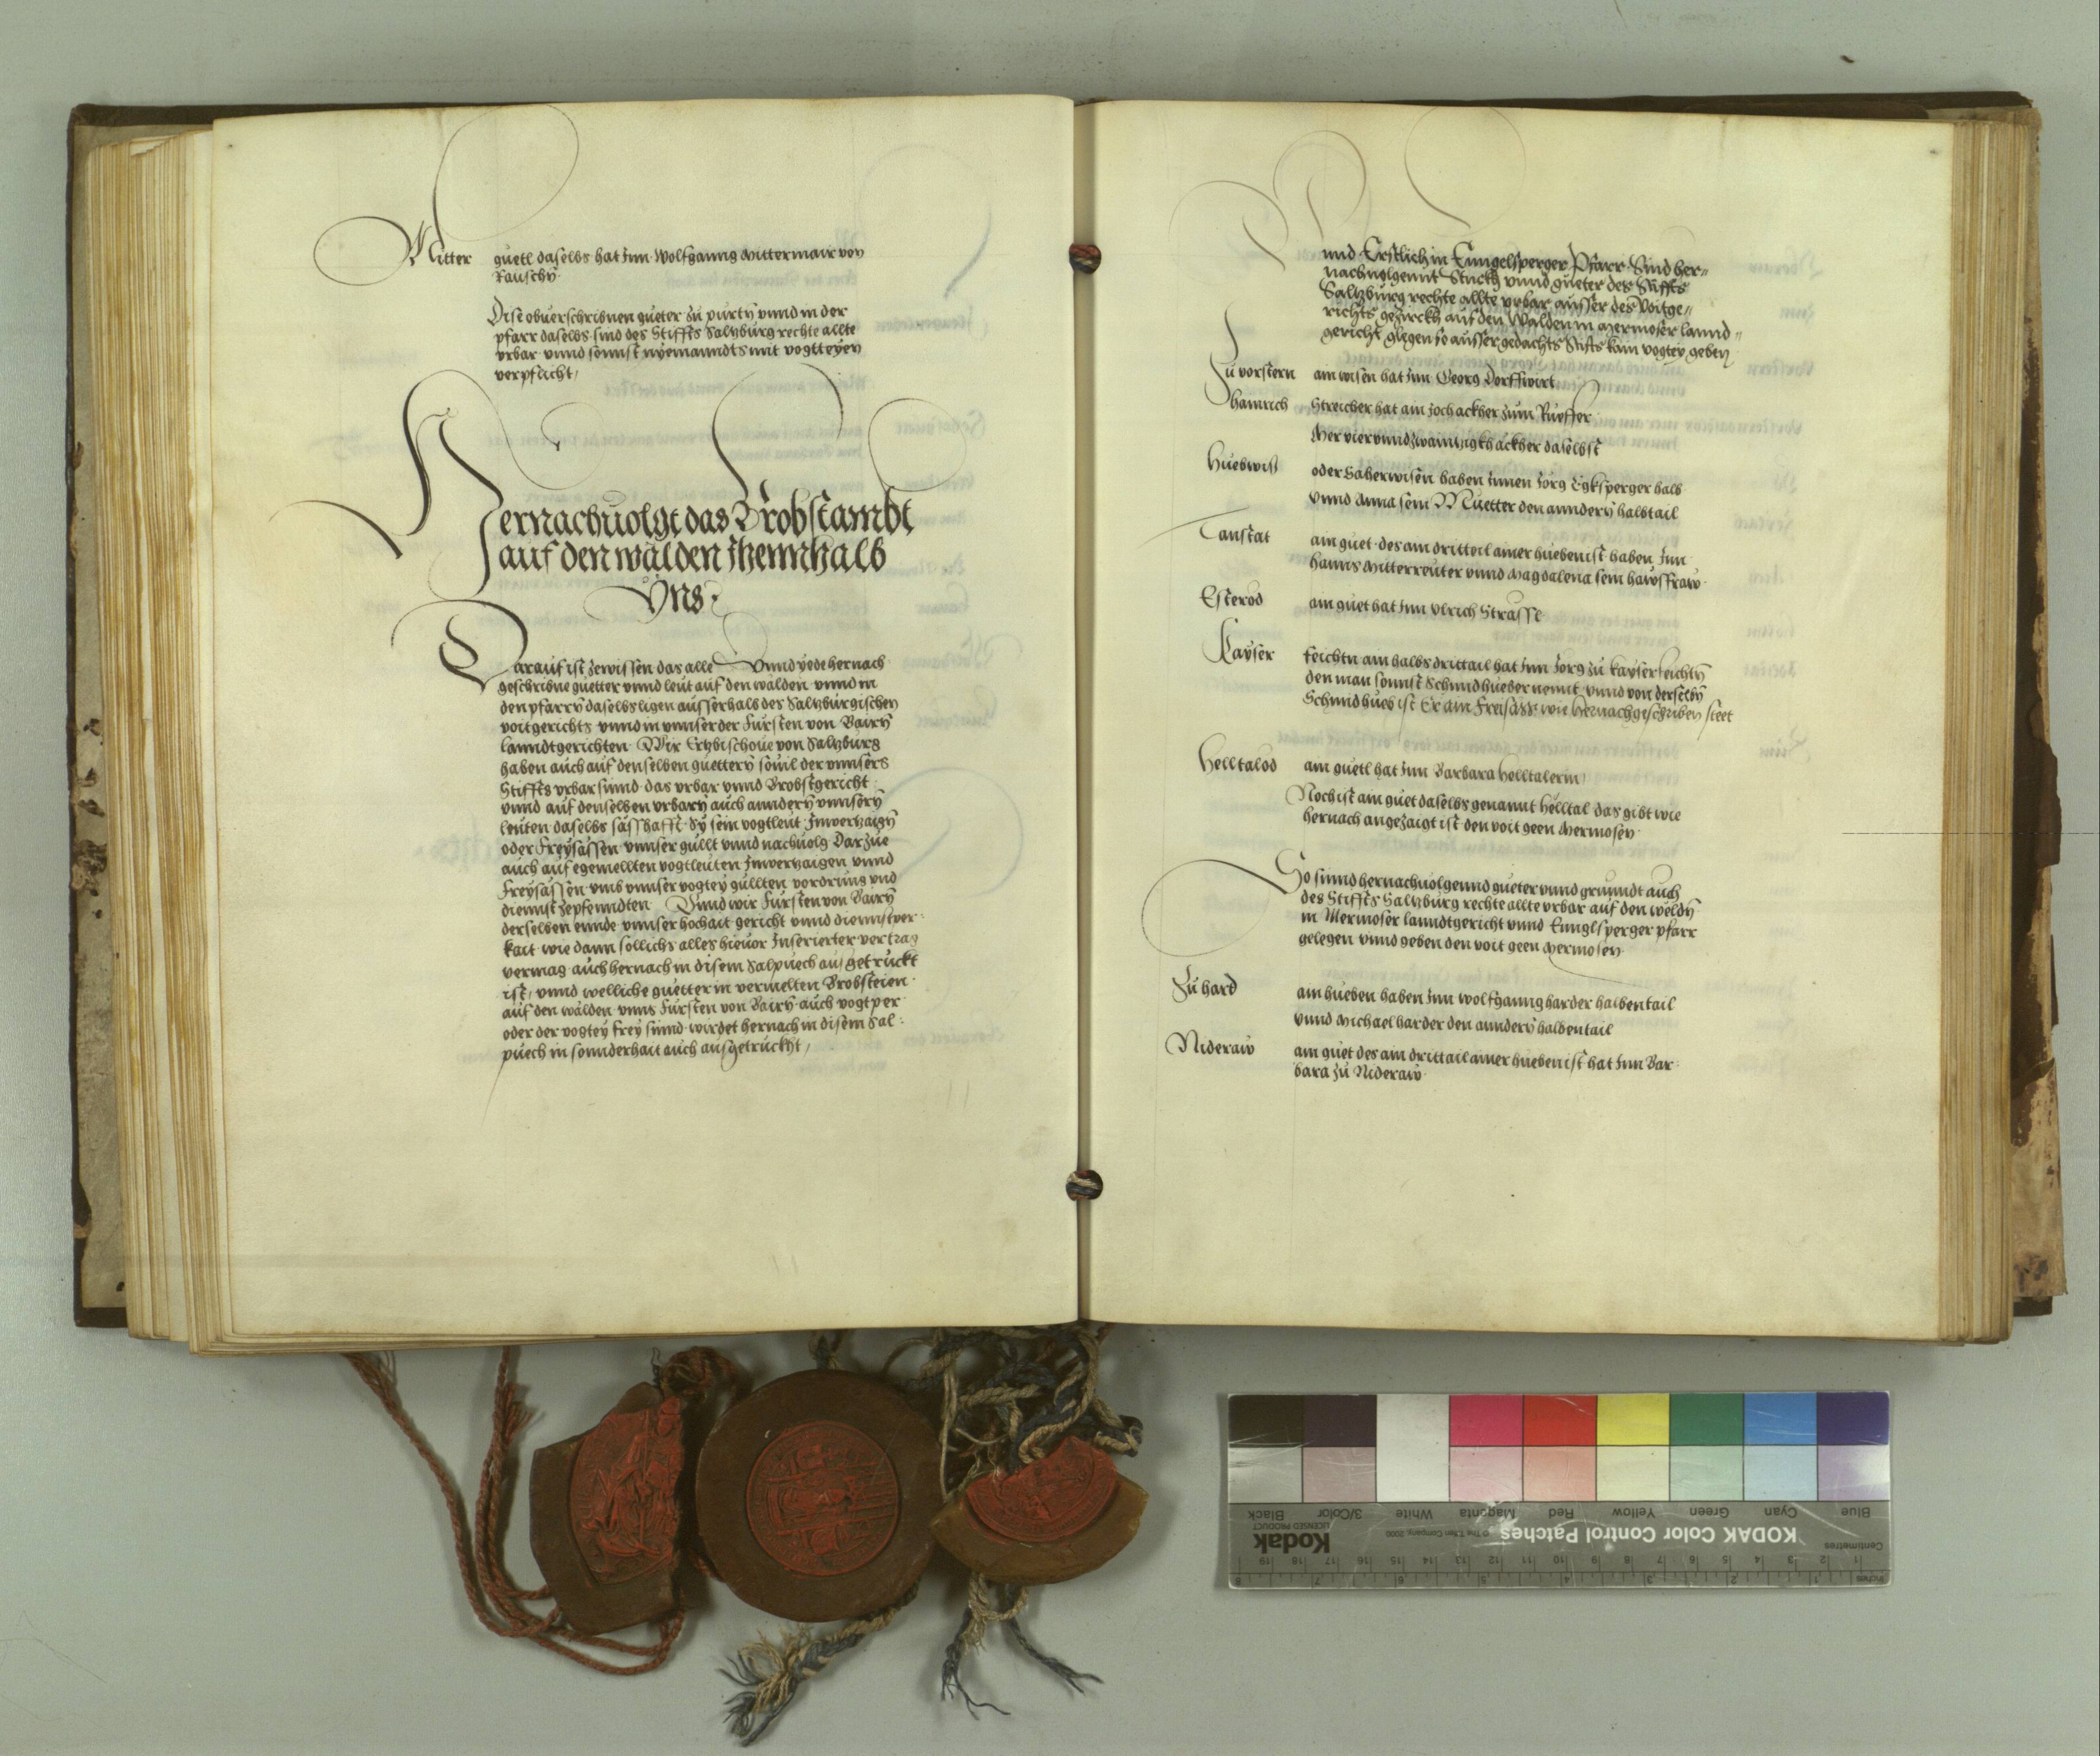 Mitter guetl daselbs hat Jnn Wolfganng Mittermair von
Rauschn̄
Dise obuerschribnen gueter zu purtn̄ vnnd in der
pfarr daselbs sind des Stiffts Saltzburg rechte allte
vrbar vnnd sonnst nyemanndts mit vogtteyen
verpflicht /
Hernachuolgt das Brobstambt
auf den wälden Jhennhalb
Yns :
Darauf ist zewissen das alle Vnnd yede hernach
geschribne guetter vnnd leut auf den walden vnnd in
den pfarrn̄ daselbs ligen ausserhalb des Saltzburgischen
voitgerichts vnnd in vnnser der Fursten von Bairn̄
lanndtgerichten Wir Ertzbischoue von Saltzburg
haben auch auf denselben guettern̄ souil der vnnsers
Stiffts vrbar sinnd das vrbar vnnd Brobstgericht
vnnd auf denselben vrbarn̄ auch anndern̄ vnnsern̄
leuten daselbs sässhafft Sy sein vogtleut Jnwertzaign̄
oder Freysassen vnnser gullt vnnd nachuolg Darzue
auch auf egemellten vogtleuten Jnwertzaigen vnnd
Freysässen vmb vnnser vogtey gullten vordrung vnd
diennst zepfenndten Vnnd wir Fursten von Bairn̄
derselben ennde vnnser hochait gericht vnnd diennstper-
kait wie dann sollichs alles hieuor Jnserierter vertrag
vermag auch hernach in disem Salpuech au getruckt
ist / vnnd welliche guetter in vermelten Brobsteien
auf den wälden vnns Fursten von Bairn̄ auch vogtper
oder der vogtey frey sinnd wirdet hernach in disem Sal :
puech in sonnderhait auch ausgetruckht /
vnnd Erstlich in Enngelsperger Pfarr Sind her=
nachuolgennt Stuckh vnnd gueter des Stiffts
Saltzburg rechte allte vrbar ausser des Voitge=
richts gezirckh auf den Walden in Mermoser lannd=
gericht glegen so ausser gedachts Stifts kain vogtey geben
Zu vorstern ain wisen hat Jnn Georg Dorffwirt
Hainrich Streicher hat ain Joch ackher zum Rueffer
Mer vier vnnd zwaintzigkh äckher daselbst
Huebwiß oder Saherwisen haben Jnnen Jörg Egksperger halb
vnnd Anna sein Muetter den anndern̄ halbtail
Tanstat ain guet des ain drittail ainer hueben ist haben Jnn
Hanns Mitterreuter vnnd Magdalena sein hawsfraw
Esterod ain guet hat Jnn Vlrich Strasse
Kayser feichtn ain halbs drittail hat Jnn Jorg zu kayserfeichtn̄
den man sonnst Schmidhueber nennt vnnd von derselbn̄
Schmidhueb ist Er ain Freisäss wie hernachgeschriben steet
Helltalod ain guetl hat Jnn Barbara Helltalerin
Noch ist ain guet daselbs genannt Helltal das gibt wie
hernach angezaigt ist den voit geen Mermosen
So sinnd hernachuolgennd gueter vnnd grunndt auch
des Stiffts Saltzburg rechte allte vrbar auf den weldn̄
in Mermoser lanndtgericht vnnd Ennglsperger pfarr
gelegen vnnd geben den voit geen Mermosen
Zu hard ain hueben haben Jnn Wolfganng harder halbentail
vnnd Michael harder den anndern̄ halbentail
Nideraw ain guet des ain drittail ainer hueben ist hat Jnn Bar
bara zu Nideraw
Blue Cyan Green Yellow Red Magenta White 3/Color Black
KODAK Color Control Patches
Kodak
LICENSED PRODUCT
© The Tiffen Company, 2000
Centimetres
Inches
1 2 3 4 5 6 7 8 9 10 11 12 13 14 15 16 17 18 19
1 2 3 4 5 6 7 8